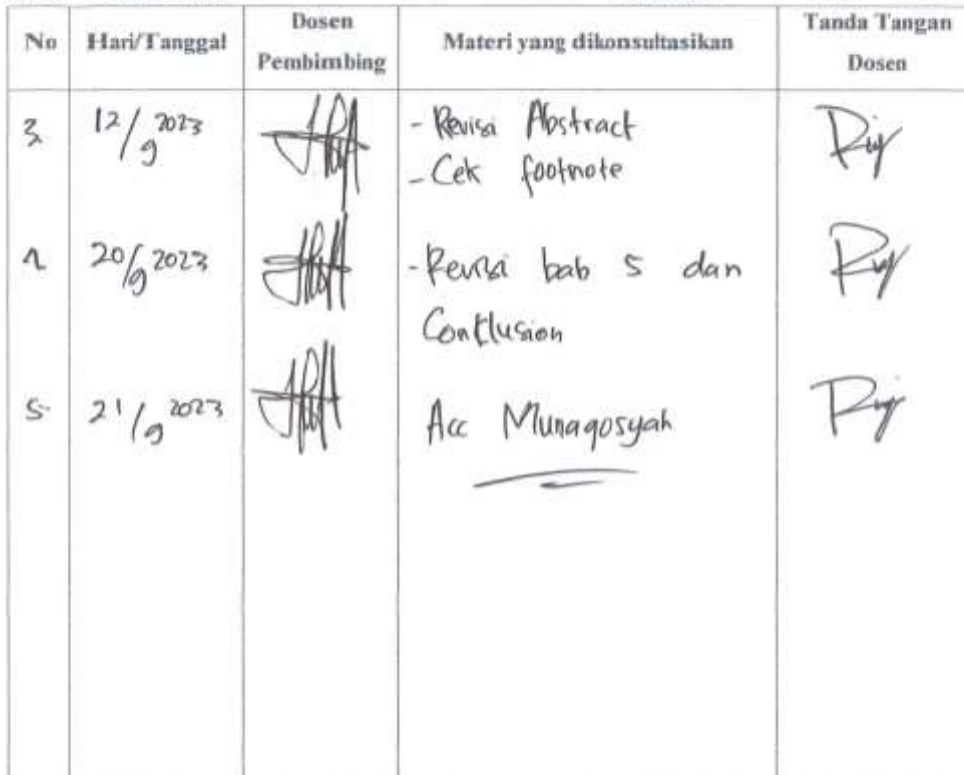 No Hari/Tanggal Dosen Pembimbing Materi yang dikonsultasikan Tanda Tangan Dosen
3 12/9 2023 - Revisi Abstract
- Cek footnote
20/9 2023 - Revisi bab 5 dan
Conclusion
5 21/9 2023 Acc Munaqosyah